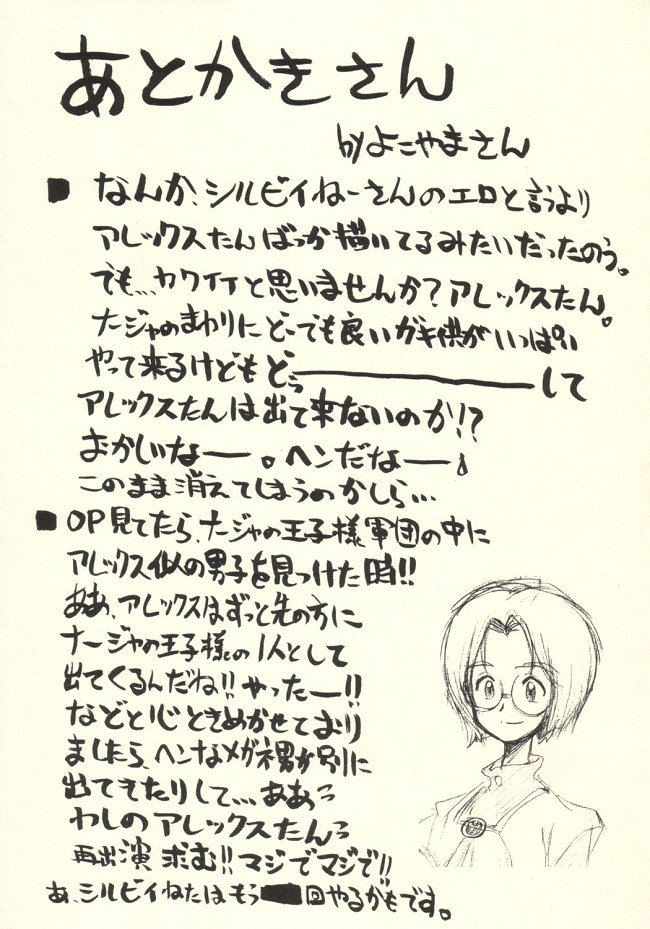 あとかきさん
by よこやまさん
■ なんか、シルビィねーさんのエロと言うより
アレックスたんばっか描いてるみたいだったのう。
でも…カワイイと思いませんか?アレックスたん。
ナージャのまわりにどーでも良いガキ供がいっぱい
やって来るけどもどぅ――――して
アレックスたんは出て来ないのか!?
おかしいなー。ヘンだなー。
このまま消えてしまうのかしら…
■ OP見てたら、ナージャの王子様軍団の中に
アレックス似の男子を見つけた時!!
ああ、アレックスはずっと先の方に
ナージャの王子様の1人として
出てくるんだね!!やったー!!
などと心ときめかせており
ましたら、ヘンなメガネ男が別に
出てきたりして…ああっ
わしのアレックスたんっ
再出演求む!!マジでマジで!!
あ、シルビィねたはもう 回やるかもです。